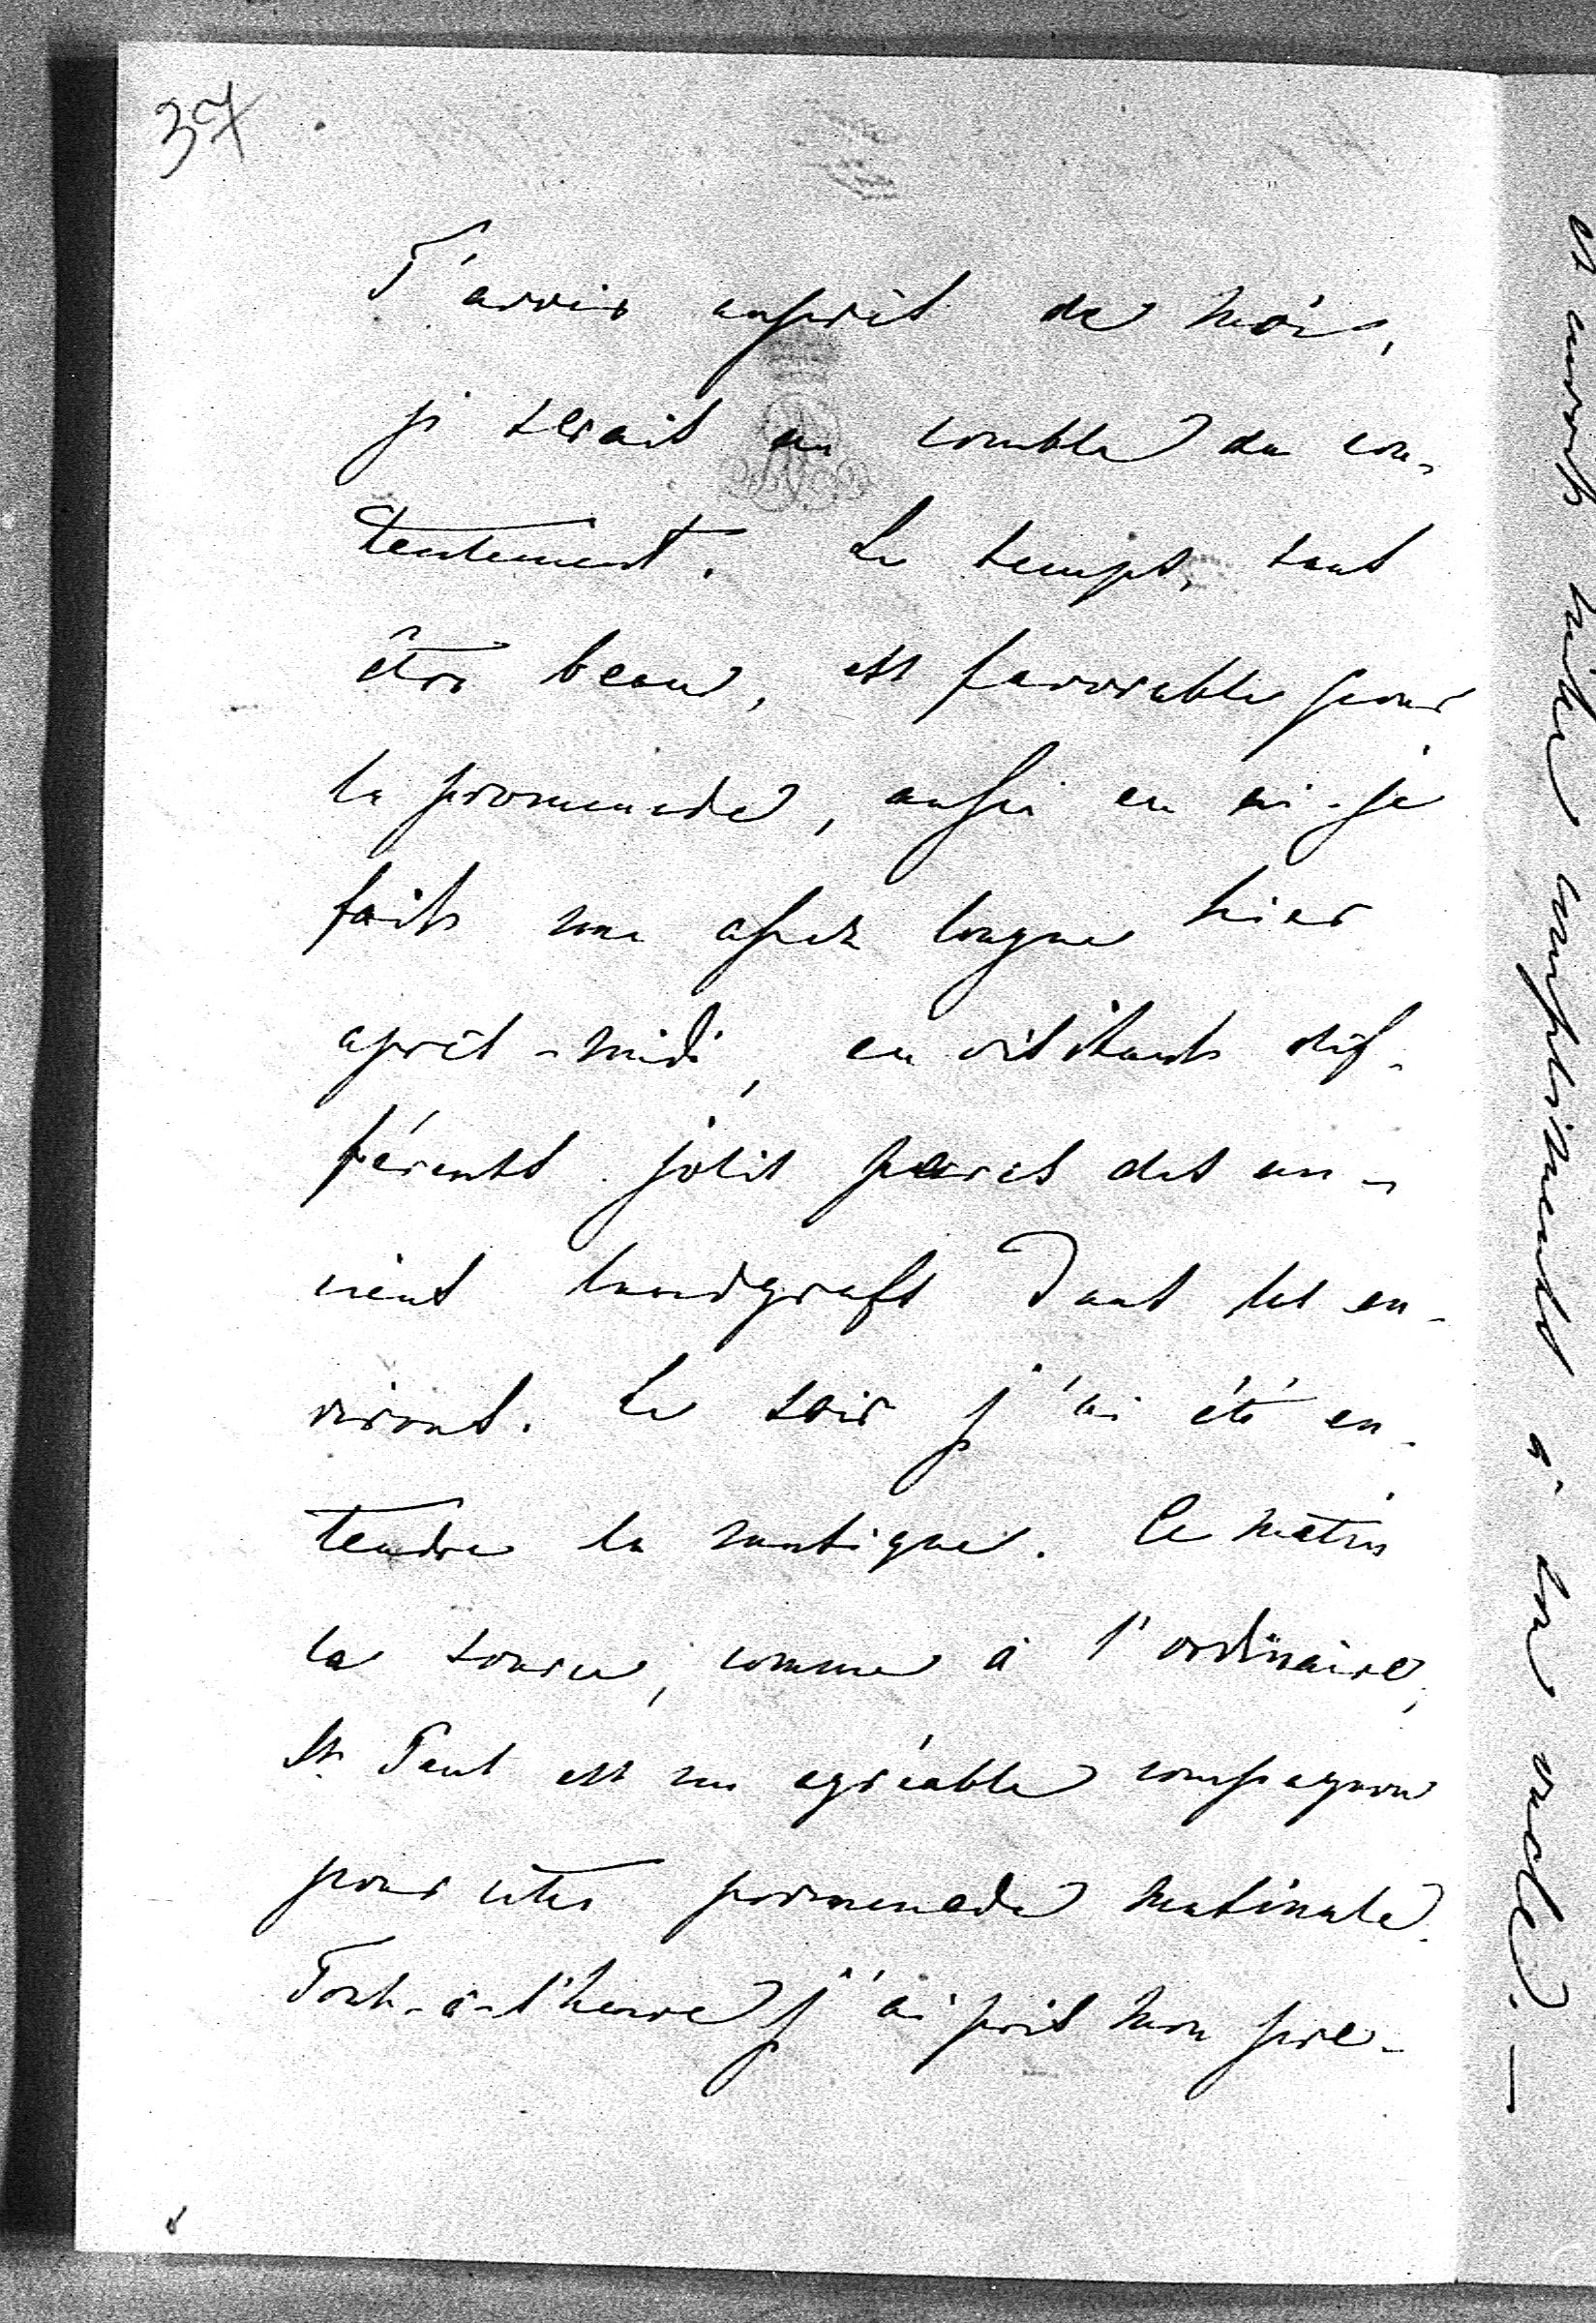 37
T'avoir auprès de moi,
je serais au comble du con-
tentement. Le temps, sans
être beau, est favorable pour
la promenade, aussi en ai-je
faite une assez longue hier
après-midi, en visitants dif-
férents jolis parcs des an-
ciens landgrafs dans les en-
virons. Le soir j'ai été en-
tendre la musique. Ce matin
la source, comme à l'ordinaire,
St. Paul est un agréable compagnon
pour cette promenade matinale.
Tout-à-l'heure j'ai pris mon pre-
mille compliments à la